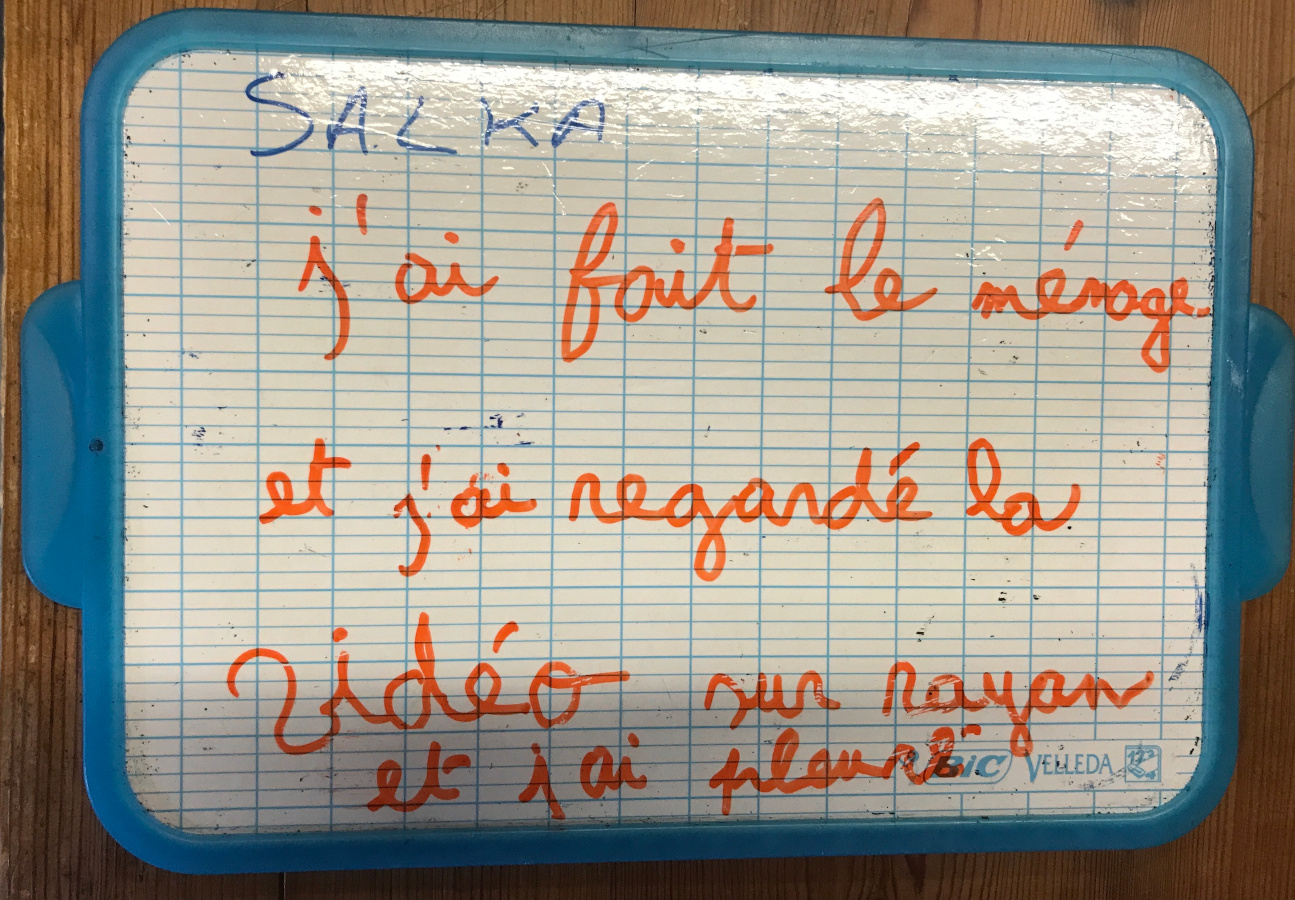 SALKA
j'ai fait le ménage
et j'ai regardé la
vidéo sur rayan
et j'ai pleuré
BIC VELLEDA